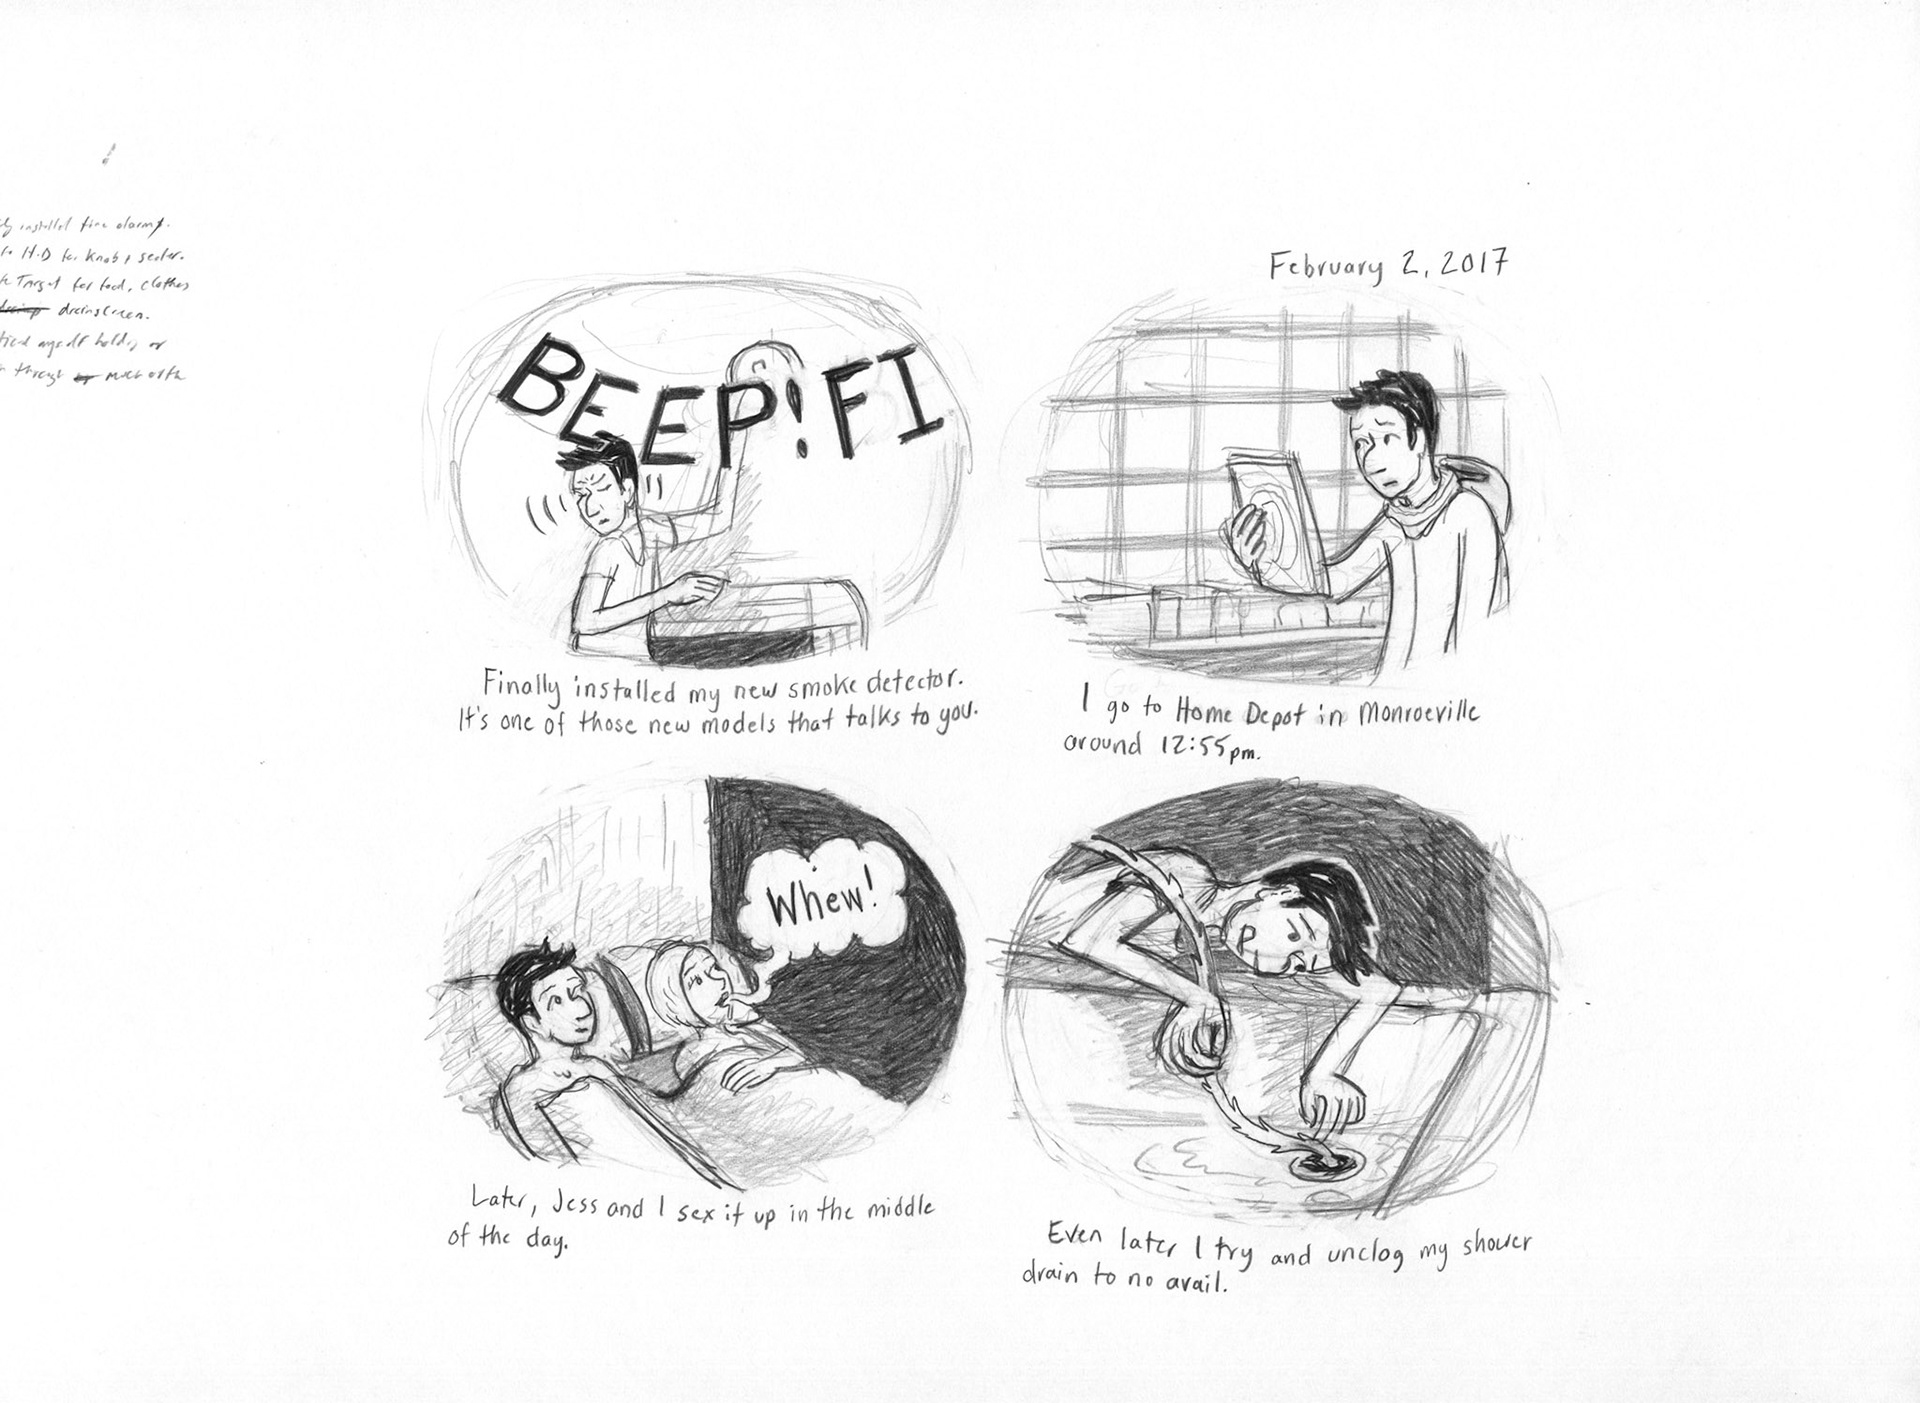 !
installed fire alarm.
H.D for knobs sealer.
Target for food, clothes
drainscreen.
myself holding or
through much of the
February 2, 2017
BEEP! FI
Finally installed my new smoke detector.
It's one of those new models that talks to you.
I go to Home Depot in Monroeville
around 12:55pm.
Whew!
Later, Jess and I sex it up in the middle
of the day.
Even later I try and unclog my shower
drain to no avail.